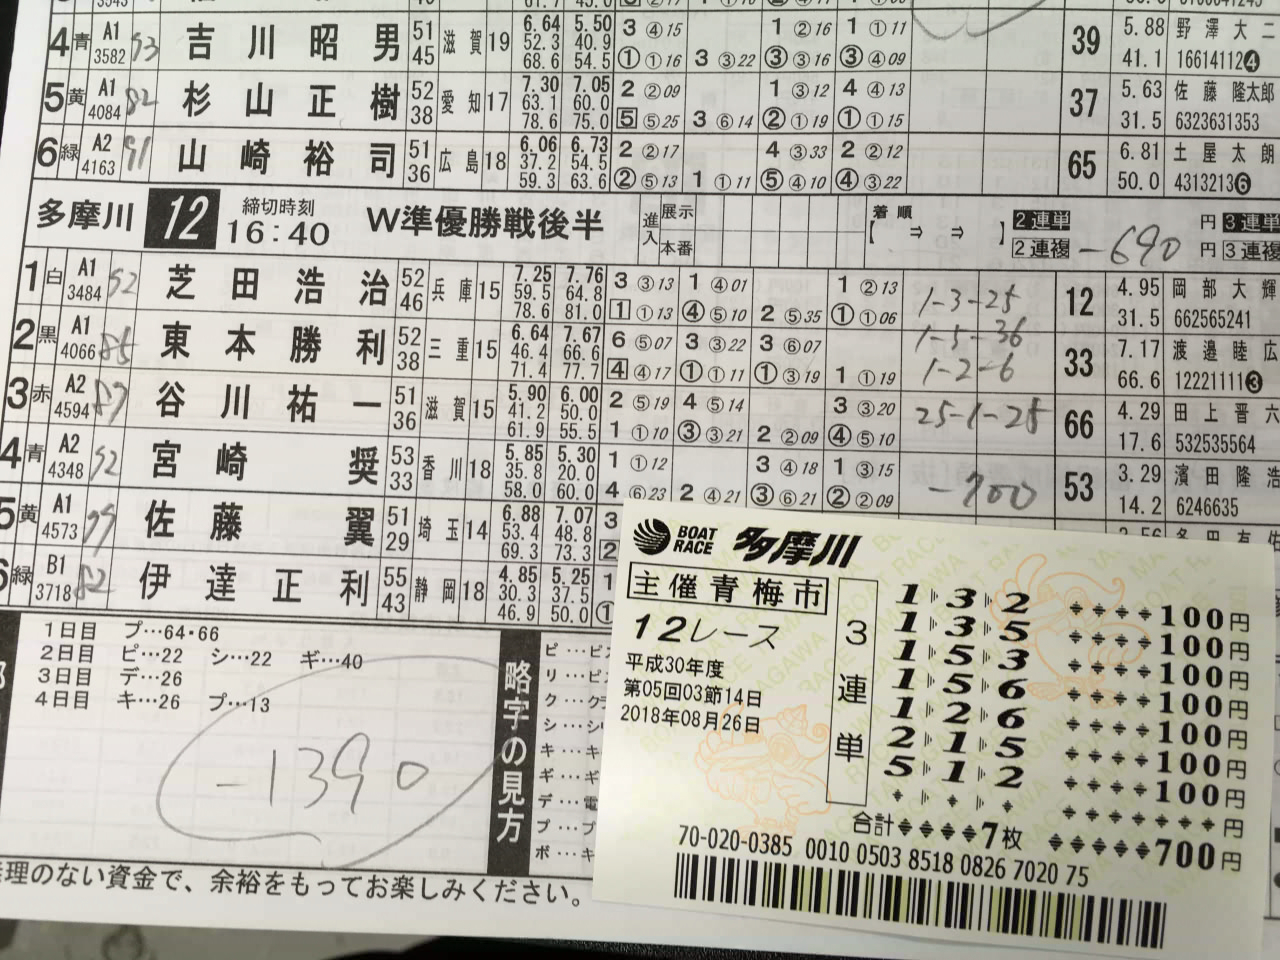 4 青 A1 3582 93 吉川昭男 51 45 滋賀 19 6.64 52.3 68.6 5.50 40.9 54.5 3 ④15 ①①16 3 ③22 1 ②16 ③③16 1 ①11 ③④09 39 5.88 41.1 野澤大二 16614112❹
5 黄 A1 4084 82 杉山正樹 52 38 愛知 17 7.30 63.1 78.6 7.05 60.0 75.0 2 ②09 5 ⑤25 3 ⑥14 1 ③12 ②①19 4 ④13 ①①15 37 5.63 31.5 佐藤隆太郎 6323631353
6 緑 A2 4163 91 山崎裕司 51 36 広島 18 6.06 37.2 59.3 6.73 54.5 63.6 2 ②17 ②⑤13 1 ①11 4 ③33 ⑤④10 2 ②12 ④③22 65 6.81 50.0 土屋太朗 4313213❻
多摩川 12 締切時刻 16:40 W準優勝戦後半 進入 展示 本番 着順 【 ⇒ ⇒ 】 2連単 円 3連単
2連複 -690 円 3連複
1 白 A1 3484 92 芝田浩治 52 46 兵庫 15 7.25 59.5 78.6 7.76 64.8 81.0 3 ③13 1 ①13 1 ④01 ④⑤10 2 ⑤35 1 ②13 ①①06 1-3-25 12 4.95 31.5 岡部大輝 662565241
2 黒 A1 4066 85 東本勝利 52 38 三重 15 6.64 46.4 71.4 7.67 66.6 77.7 6 ⑤07 4 ④17 3 ③22 ①①11 3 ⑥07 ①③19 1 ①19 1-5-36 1-2-6 33 7.17 66.6 渡邉睦広 12221111❸
3 赤 A2 4594 87 谷川祐一 51 36 滋賀 15 5.90 41.2 61.9 6.00 50.0 55.5 2 ⑤19 1 ①10 4 ⑤14 ③③21 2 ②09 3 ③20 ④⑤10 25-1-25 66 4.29 17.6 田上晋六 532535564
4 青 A2 4348 92 宮崎奨 53 33 香川 18 5.85 35.8 58.0 5.30 20.0 60.0 1 ①12 4 ⑥23 2 ④21 3 ④18 ③⑥21 1 ③15 ②②09 -700 53 3.29 14.2 濱田隆浩 6246635
5 黄 A1 4573 99 佐藤翼 51 29 埼玉 14 6.88 53.4 69.3 7.07 48.8 73.3 3 2
6 緑 B1 3718 82 伊達正利 55 43 静岡 18 4.85 30.3 46.9 5.25 37.5 50.0 1 ①
1日目 プ…64・66
2日目 ピ…22 シ…22 ギ…40
3日目 デ…26
4日目 キ…26 プ…13
-1390
略字の見方
ピ…ピ
リ…リ
ク…ク
シ…シ
キ…キ
ギ…ギ
デ…電
プ…プ
ボ…キ
無理のない資金で、余裕をもってお楽しみください。
BOAT RACE 多摩川
主催青梅市
12レース
平成30年度
第05回03節14日
2018年08月26日
3連単
1 3 2 100円
1 3 5 100円
1 5 3 100円
1 5 6 100円
1 2 6 100円
2 1 5 100円
5 1 2 100円
円
合計 7枚 700円
70-020-0385 0010 0503 8518 0826 7020 75